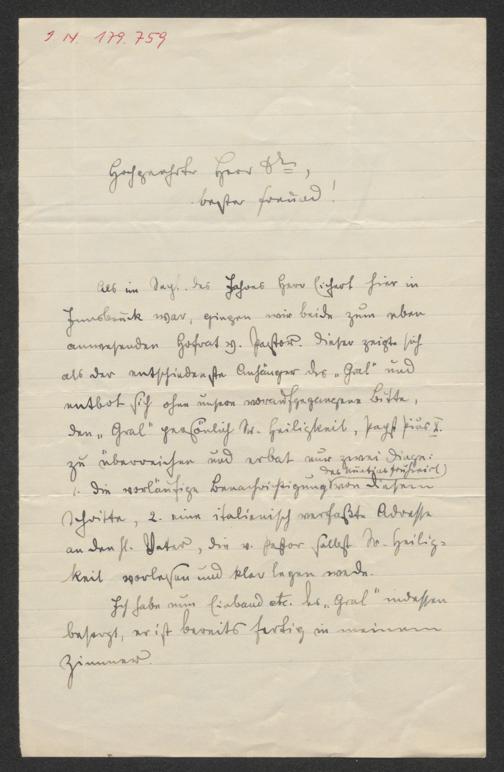 J. N. 179.759
Hochgeehrter Herr Dr,
bester Freund!
Als im Sept. des Jahres Herr Eichert hier in
Innsbruck war, giengen wir beide zum eben
anwesenden Hofrat v. Pastor. Dieser zeigte sich
als der entschiedenste Anhänger des „Gral" und
entbot sich ohne unsere vorausgegangene Bitte,
den „Gral" persönlich Sr. Heiligkeit, Papst Pius X.
zu überreichen und erbat nur zwei Dinge:
1. die vorläufige Benachrichtigung von diesem
Schritte, 2. eine italienisch verfaßte Adresse
an den hl. Vater, die v. Pastor selbst Sr. Heilig-
keit vorlesen und klar legen werde.
Ich habe nun Einband etc. des „Gral" indessen
besorgt, er ist bereits fertig in meinem
Zimmer.